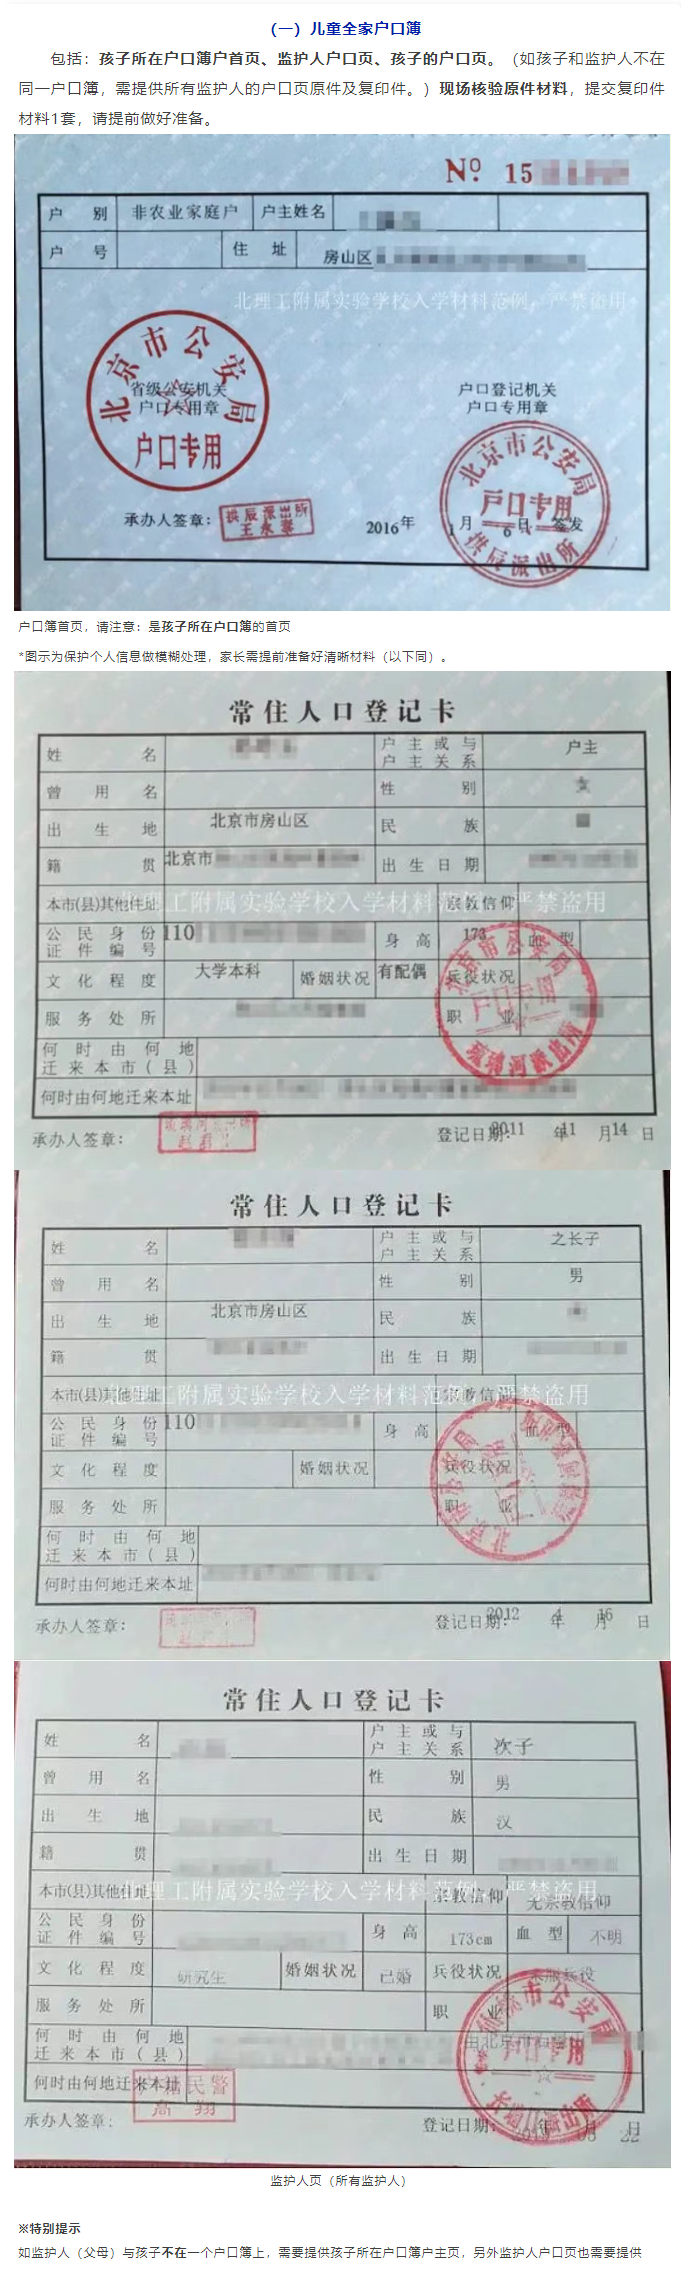 （一）儿童全家户口簿
包括：孩子所在户口簿户首页、监护人户口页、孩子的户口页。（如孩子和监护人不在
同一户口簿，需提供所有监护人的户口页原件及复印件。）现场核验原件材料，提交复印件
材料1套，请提前做好准备。
Nº. 15
户 别 非农业家庭户 户主姓名
户 号 住 址 房山区
北理工附属实验学校入学材料范例，严禁盗用
北京市公安局
户口专用
省级公安机关
户口专用章
户口登记机关
户口专用章
北京市公安局
户口专用
拱辰派出所
承办人签章：
拱辰派出所
2016年 1月 6日 签发
户口簿首页，请注意：是孩子所在户口簿的首页
*图示为保护个人信息做模糊处理，家长需提前准备好清晰材料（以下同）。
常住人口登记卡
姓 名 户主或与
户主关系 户主
曾用名 性 别 女
出生地 北京市房山区 民 族
籍 贯 北京市 出生日期
本市(县)其他住址 宗教信仰
北理工附属实验学校入学材料范例，严禁盗用
公民身份
证件编号 110 身 高 173 血 型
文化程度 大学本科 婚姻状况 有配偶 兵役状况
服务处所 职 业
北京市公安局
户口专用
琉璃河派出所
何时由何地
迁来本市(县)
何时由何地迁来本址
承办人签章：
登记日期：2011 年 11 月 14 日
常住人口登记卡
姓 名 户主或与
户主关系 之长子
曾用名 性 别 男
出生地 北京市房山区 民 族
籍 贯 出生日期
本市(县)其他住址 宗教信仰
北理工附属实验学校入学材料范例，严禁盗用
公民身份
证件编号 110 身 高 血 型
文化程度 婚姻状况 兵役状况
服务处所 职 业
何时由何地
迁来本市(县)
何时由何地迁来本址
承办人签章：
登记日期：2012 年 4 月 16 日
常住人口登记卡
姓 名 户主或与
户主关系 次子
曾用名 性 别 男
出生地 民 族 汉
籍 贯 出生日期
本市(县)其他住址 宗教信仰 无宗教信仰
北理工附属实验学校入学材料范例，严禁盗用
公民身份
证件编号 身 高 173cm 血 型 不明
文化程度 研究生 婚姻状况 已婚 兵役状况 未服兵役
服务处所 职 业
何时由何地
迁来本市(县) 由北京市
何时由何地迁来本址
市公安局
户口专用
派出所
户籍民警
高翔
承办人签章：
登记日期： 年 月 22 日
监护人页（所有监护人）
※特别提示
如监护人（父母）与孩子不在一个户口簿上，需要提供孩子所在户口簿户主页，另外监护人户口页也需要提供